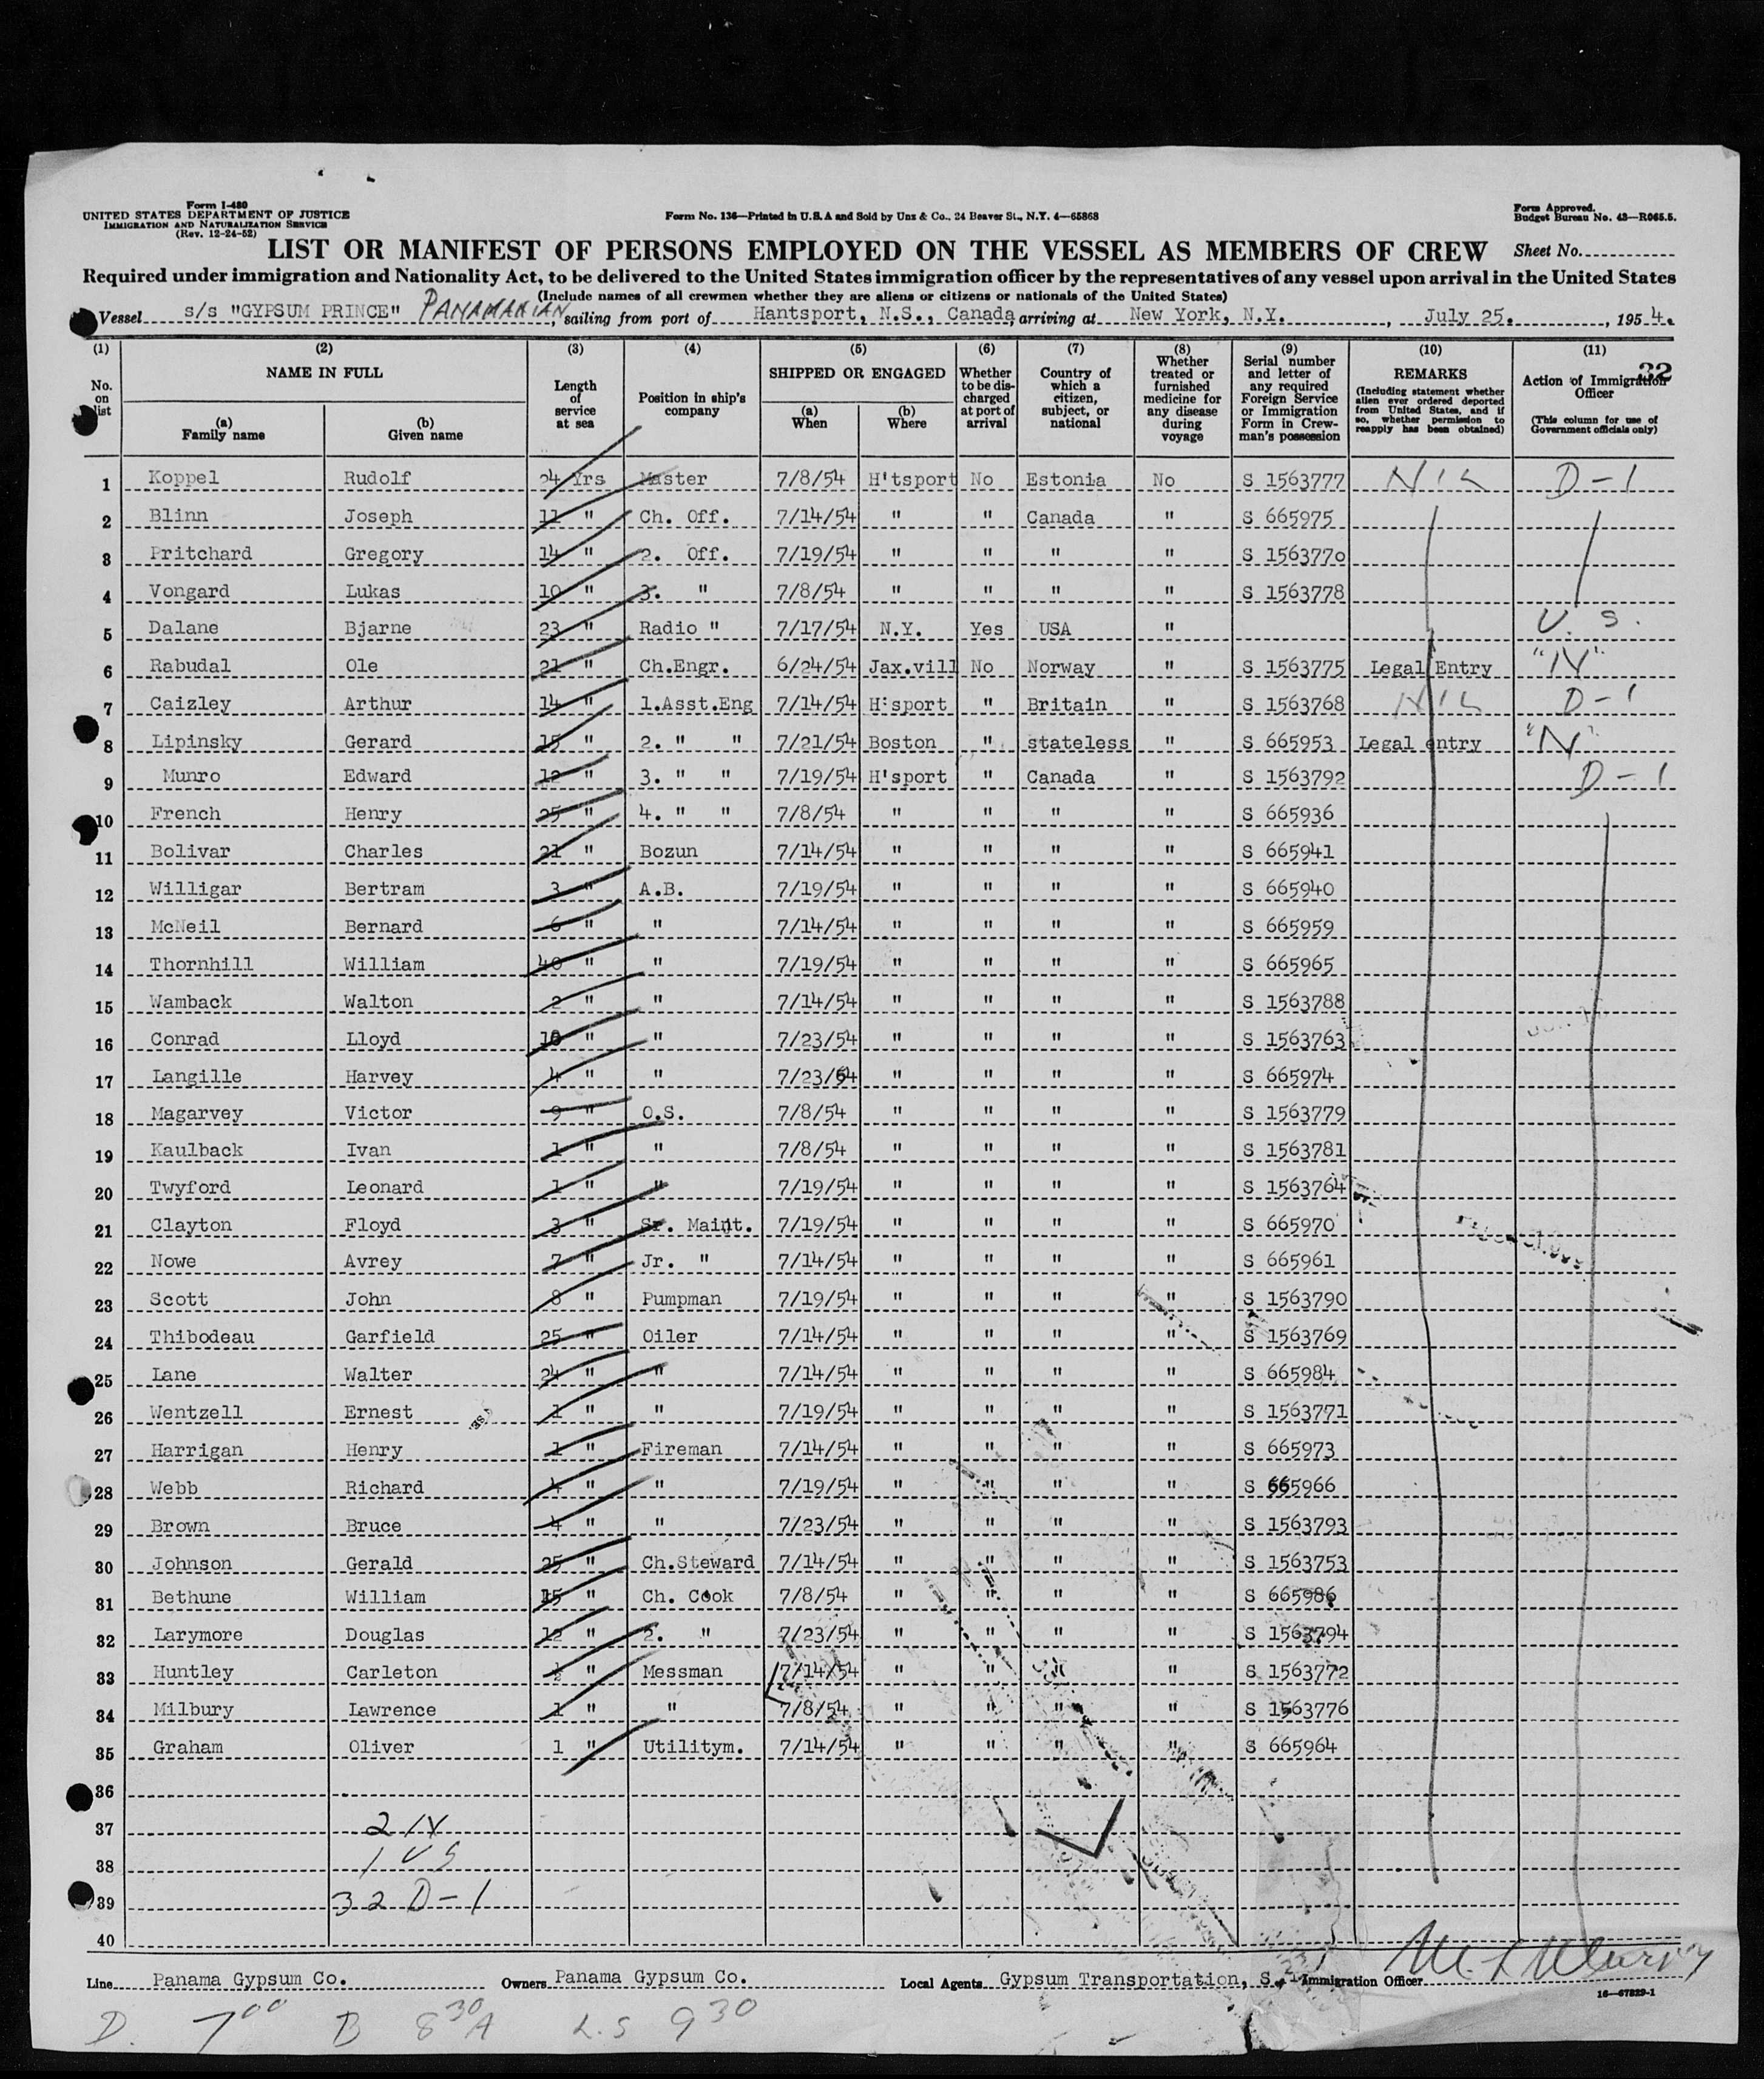 Form I-480
UNITED STATES DEPARTMENT OF JUSTICE
IMMIGRATION AND NATURALIZATION SERVICE
(Rev. 12-24-52)
Form No. 136—Printed in U.S.A and Sold by Unz & Co., 24 Beaver St., N.Y. 4—65868
Form Approved.
Budget Bureau No. 43—R065.5.
LIST OR MANIFEST OF PERSONS EMPLOYED ON THE VESSEL AS MEMBERS OF CREW Sheet No.
Required under immigration and Nationality Act, to be delivered to the United States immigration officer by the representatives of any vessel upon arrival in the United States
(Include names of all crewmen whether they are aliens or citizens or nationals of the United States)
Vessel s/s "GYPSUM PRINCE" PANAMANIAN, sailing from port of Hantsport, N.S., Canada, arriving at New York, N.Y., July 25., 1954.
(1) No. on list
(2) NAME IN FULL (a) Family name (b) Given name
(3) Length of service at sea
(4) Position in ship's company
(5) SHIPPED OR ENGAGED (a) When (b) Where
(6) Whether to be discharged at port of arrival
(7) Country of which a citizen, subject, or national
(8) Whether treated or furnished medicine for any disease during voyage
(9) Serial number and letter of any required Foreign Service or Immigration Form in Crewman's possession
(10) REMARKS (Including statement whether alien ever ordered deported from United States, and if so, whether permission to reapply has been obtained)
(11) 32 Action of Immigration Officer (This column for use of Government officials only)
1 Koppel Rudolf 24 Yrs Master 7/8/54 H'tsport No Estonia No S 1563777 NIL D-1
2 Blinn Joseph 11 " Ch. Off. 7/14/54 " " Canada " S 665975
3 Pritchard Gregory 14 " 2. Off. 7/19/54 " " " " S 1563770
4 Vongard Lukas 10 " 3. " 7/8/54 " " " " S 1563778
5 Dalane Bjarne 23 " Radio " 7/17/54 N.Y. Yes USA " U.S.
6 Rabudal Ole 21 " Ch.Engr. 6/24/54 Jax.vill No Norway " S 1563775 Legal Entry "N"
7 Caizley Arthur 14 " 1.Asst.Eng 7/14/54 H'sport " Britain " S 1563768 NIL D-1
8 Lipinsky Gerard 15 " 2. " " 7/21/54 Boston " stateless " S 665953 Legal entry "N"
9 Munro Edward 12 " 3. " " 7/19/54 H'sport " Canada " S 1563792 D-1
10 French Henry 25 " 4. " " 7/8/54 " " " " S 665936
11 Bolivar Charles 21 " Bozun 7/14/54 " " " " S 665941
12 Willigar Bertram 3 " A.B. 7/19/54 " " " " S 665940
13 McNeil Bernard 6 " " 7/14/54 " " " " S 665959
14 Thornhill William 40 " " 7/19/54 " " " " S 665965
15 Wamback Walton 2 " " 7/14/54 " " " " S 1563788
16 Conrad Lloyd 10 " " 7/23/54 " " " " S 1563763
17 Langille Harvey 4 " " 7/23/54 " " " " S 665974
18 Magarvey Victor 9 " O.S. 7/8/54 " " " " S 1563779
19 Kaulback Ivan 1 " " 7/8/54 " " " " S 1563781
20 Twyford Leonard 1 " " 7/19/54 " " " " S 1563764
21 Clayton Floyd 3 " Sr. Maint. 7/19/54 " " " " S 665970
22 Nowe Avrey 7 " Jr. " 7/14/54 " " " " S 665961
23 Scott John 8 " Pumpman 7/19/54 " " " " S 1563790
24 Thibodeau Garfield 25 " Oiler 7/14/54 " " " " S 1563769
25 Lane Walter 24 " " 7/14/54 " " " " S 665984
26 Wentzell Ernest 1 " " 7/19/54 " " " " S 1563771
27 Harrigan Henry 1 " Fireman 7/14/54 " " " " S 665973
28 Webb Richard 4 " " 7/19/54 " " " " S 665966
29 Brown Bruce 4 " " 7/23/54 " " " " S 1563793
30 Johnson Gerald 25 " Ch.Steward 7/14/54 " " " " S 1563753
31 Bethune William 15 " Ch. Cook 7/8/54 " " " " S 665986
32 Larymore Douglas 12 " 2. " 7/23/54 " " " " S 1563794
33 Huntley Carleton ½ " Messman 7/14/54 " " " " S 1563772
34 Milbury Lawrence 1 " " 7/8/54 " " " " S 1563776
35 Graham Oliver 1 " Utilitym. 7/14/54 " " " " S 665964
36
37 2 N
38 1 US
39 32 D-1
40
Line Panama Gypsum Co. Owners Panama Gypsum Co. Local Agents Gypsum Transportation, Immigration Officer
16—67829-1
D. 7 00 B 8 30 A L.S 9 30